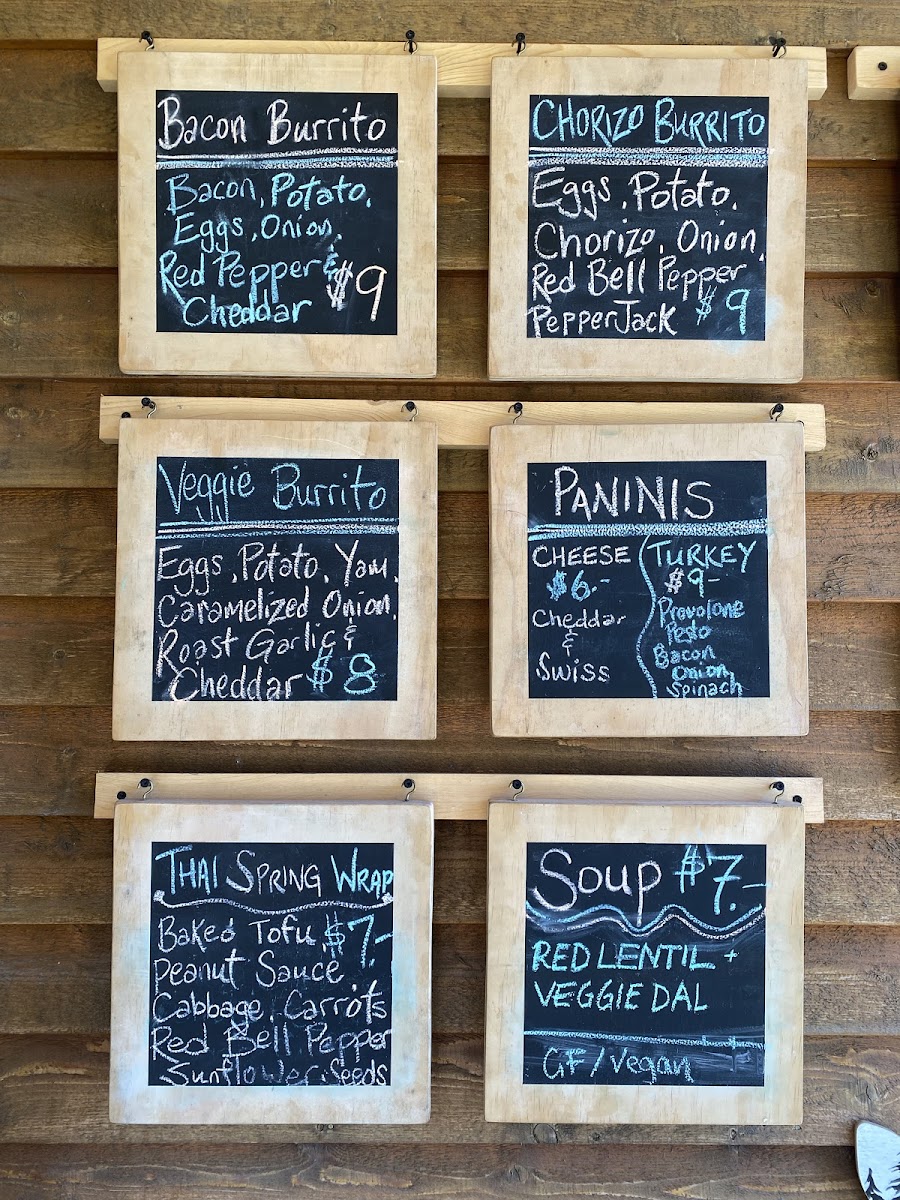 Bacon Burrito
Bacon, Potato,
Eggs, Onion,
Red Pepper &
Cheddar $9
CHORIZO BURRITO
Eggs, Potato,
Chorizo, Onion,
Red Bell Pepper
PepperJack $9
Veggie Burrito
Eggs, Potato, Yam,
Caramelized Onion,
Roast Garlic &
Cheddar $8
PANINIS
CHEESE
$6.-
Cheddar
&
Swiss
TURKEY
$9-
Provolone
Pesto
Bacon
Onion
Spinach
THAI SPRING WRAP
Baked Tofu, $7.-
Peanut Sauce
Cabbage, Carrots
Red Bell Pepper
Sunflower Seeds
Soup $7.-
RED LENTIL +
VEGGIE DAL
GF/Vegan